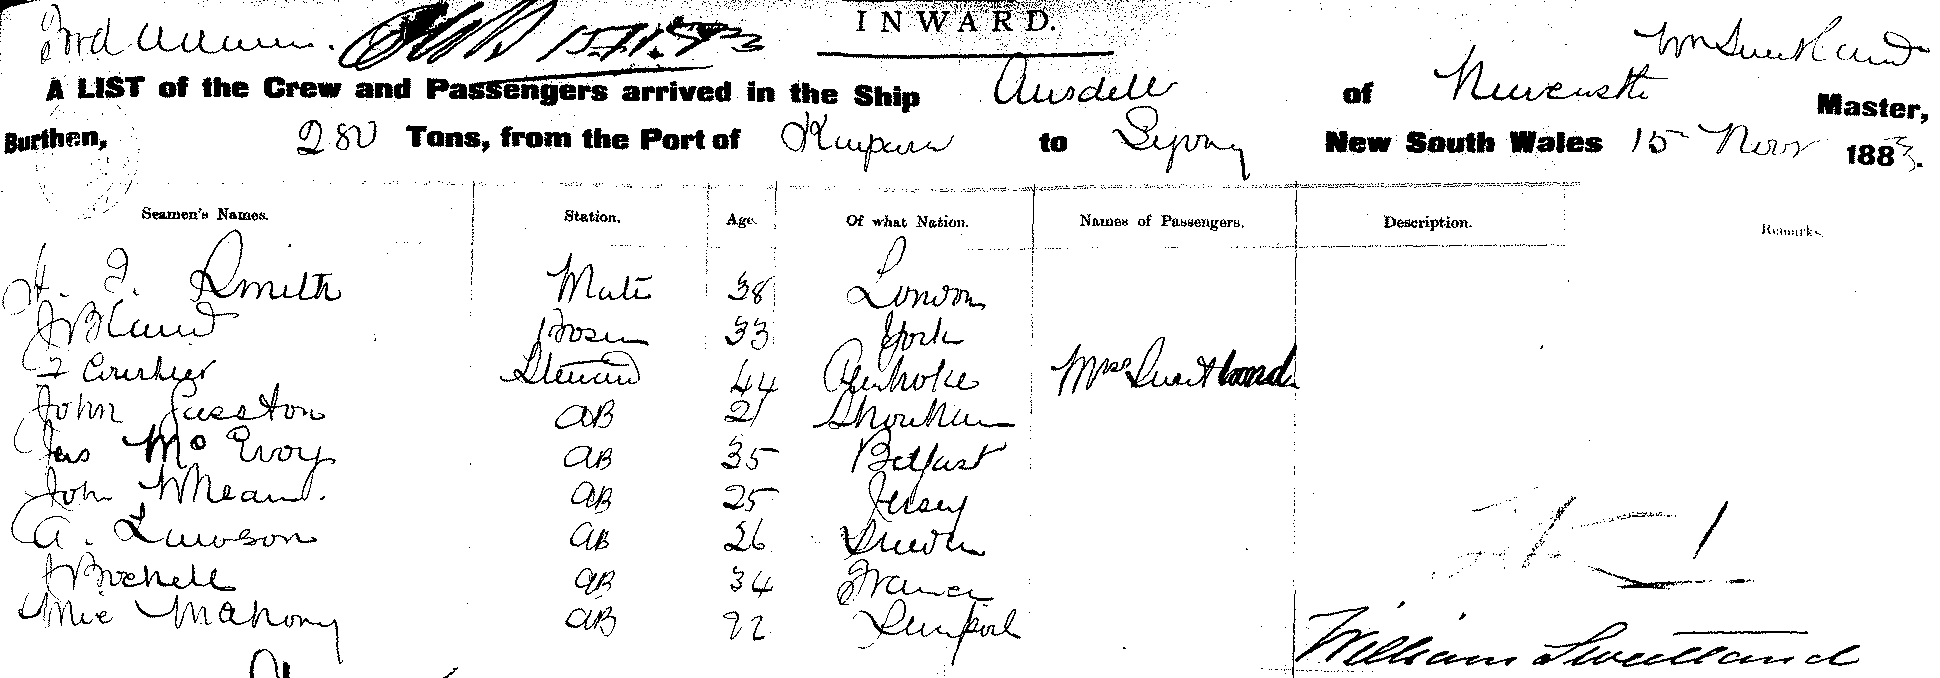 INWARD.
Wm Sweetland
A LIST of the Crew and Passengers arrived in the Ship Ausdell of Newcastle Master,
Burthen, 280 Tons, from the Port of Kaipara to Sydney New South Wales 15 Novr 1883.
Seamen's Names. Station. Age. Of what Nation. Names of Passengers. Description. Remarks.
H. F. Smith Mate 38 London
J Bland Bosun 33 York
F Steward 44 Pembroke Mrs Sweetland
John AB 21 Shoreham
Jas McEvoy AB 35 Belfast
John AB 25 Jersey
A. Lawson AB 26 Sweden
J AB 34 France
Mic Mahony AB 22
William Sweetland